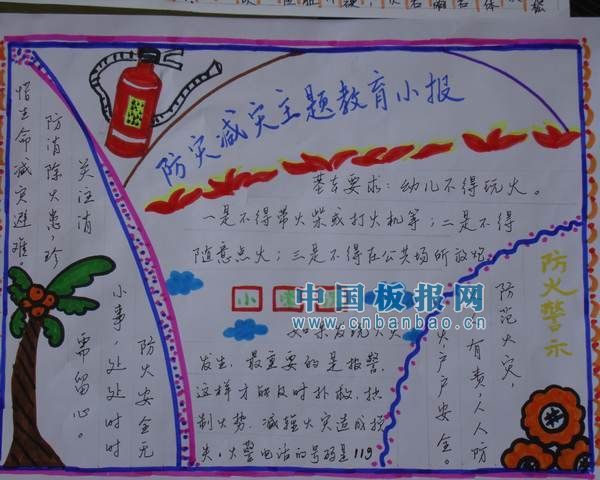 防灾减灾主题教育小报
基本要求:幼儿不得玩火。
一是不得带火柴或打火机等;二是不得
随意点火;三是不得在公共场所放炮
关注消
防消除火患,珍
惜生命减灾避难。
防火安全无
小事,处处时时
需留心。
小
中国板报网
www.cnbanbao.cn
如果发现火
发生,最重要的是报警,
这样才能及时扑救,控
制火势,减轻火灾造成损
失。火警电话的号码是119
防火警示
防范火灾,
有责,人人防
火户户安全。